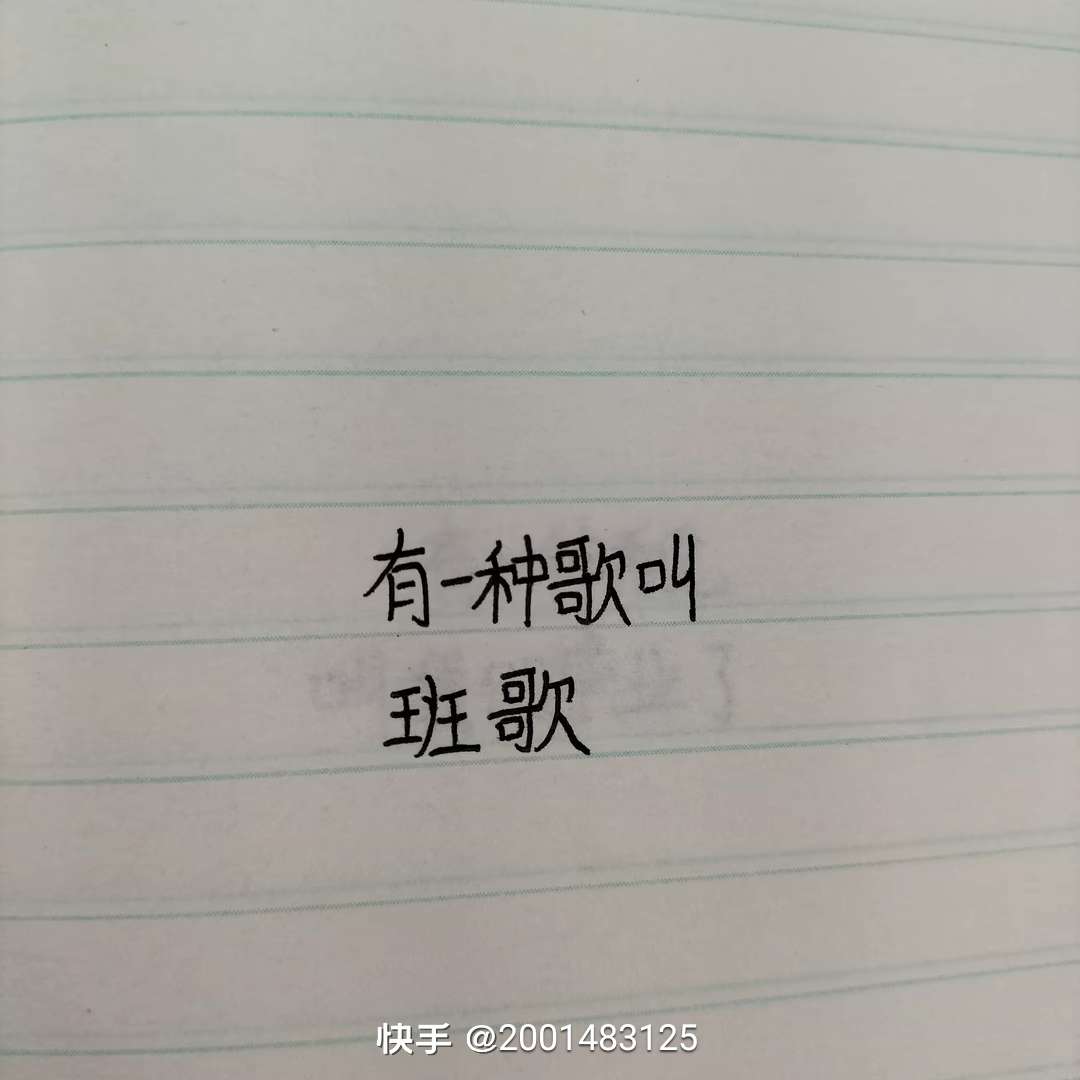 有一种歌叫
班歌
快手 @2001483125